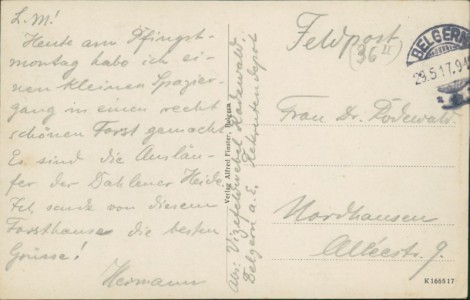 L. M!
Heute am Pfingst-
montag habe ich ei-
nen kleinen Spazier-
gang in einen recht
schönen Forst gemacht
Es sind die Ausläu-
fer der Dahlener Heide.
Ich sende von diesem
Forsthause die besten
Grüsse!
Hermann
Verlag Alfred Finster, Belgern
Abs: Vizefeldwebel Rödewald.
Belgern a. E. Rekrutendepot
Feldpost
(36 II)
BELGERN
29.5.17. 9-1
Frau Dr. Rödewald
Nordhausen
Alleestr. 9.
K 166517